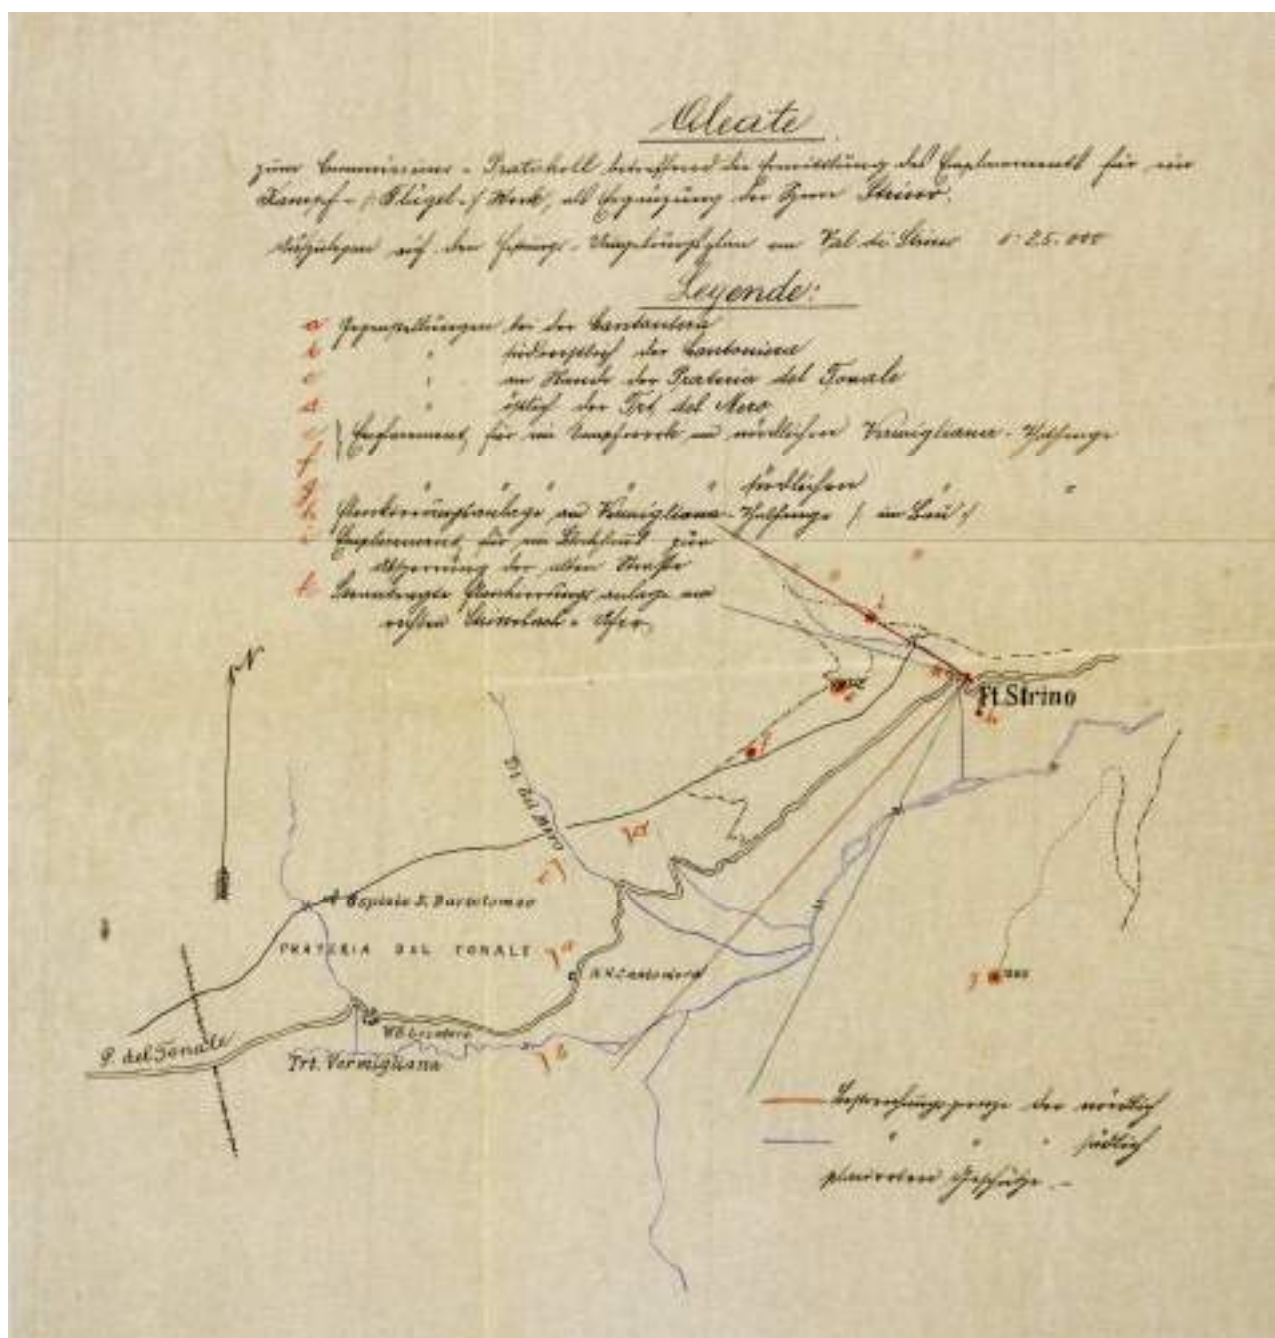 Oleate
zum Commissions-Protokoll betreffend die Ermittlung des Emplacements für ein
Kampf-/:Flügel-:/Werk, als Ergänzung der Sperre Strino.
auf den Umgebungsplan von Val di Strino 1:25.000
Legende:
a Gegenstellungen bei der Cantoniera
b " südwestlich der Cantoniera
c " am Rande der Prateria del Tonale
d " östlich der Trt. del Nero
e Emplacement für ein Kampfwerk an nördlichen Vermigliana-Thalhange
f
g " " " " " südlichen " "
h Flankierungsanlage am Vermigliana-Thalhange /: im Bau :/
i Emplacement für ein Blockhaus zur
Absperrung der alten Straße
k Flankierungsanlage am
rechten Strinobach-Ufer
N
Ft. Strino
i
k
e
h
f
d
c
Ospizio S. Bartolomeo
PRATERIA DEL TONALE
a
Cantoniera
g
P. del Tonale
Trt. Vermigliana
b
Bestreichungsgrenze der nördlich
" " " südlich
placirten Geschütze.-